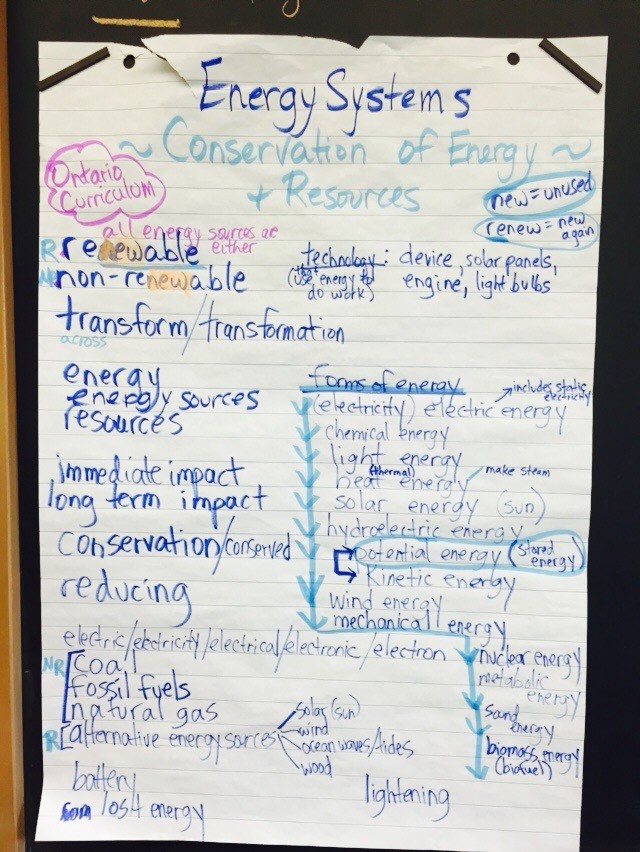 Energy Systems
~ Conservation of Energy ~
+ Resources
Ontario
Curriculum
new = unused
renew = new
again
all energy sources are
either
R renewable
NR non-renewable
technology : device, solar panels,
engine, light bulbs
(that use energy to
do work)
transform/transformation
across
energy
energy sources
resources
immediate impact
long term impact
conservation/conserved
reducing
forms of energy
(electricity) electric energy
includes static
electricity
chemical energy
light energy
(thermal)
heat energy
make steam
solar energy (sun)
hydroelectric energy
potential energy (stored
energy)
kinetic energy
wind energy
mechanical energy
nuclear energy
metabolic
energy
sound
energy
biomass energy
(biofuel)
electric/electricity/electrical/electronic/electron
NR [coal
fossil fuels
natural gas
R [alternative energy sources
solar (sun)
wind
ocean waves/tides
wood
battery
los4 energy
lightening